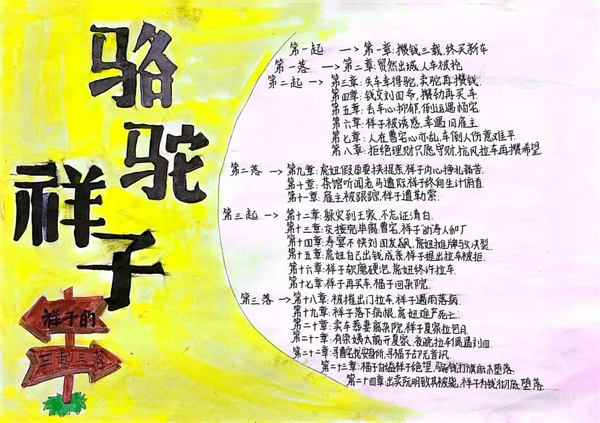 骆驼
祥子
祥子的
三起三落
第一起 —> 第一章:攒钱三载,终买新车
第一落 —> 第二章:贸然出城,人车被抢
第二起 —> 第三章:失车幸得驼,卖驼再攒钱.
第四章:钱交刘四爷,攒劲再买车
第五章:丢车心抑郁,倒运遇杨宅
第六章:祥子被诱惑,幸遇旧雇主
第七章:人在曹宅心亦乱,车倒人伤意难平
第八章:拒绝理财只愿守财,抗风拉车再攒希望
第二落 —> 第九章:虎妞假孕要挟提亲,祥子内心挣扎
第十章:茶馆听闻老马遭际,祥子终向生计
第十一章:雇主被跟踪,祥子遭勒索.
第三起 —> 十二章:躲灾到王家,不忘证清白.
第十三章:交接完毕离曹宅,祥子前去人和厂
第十四章:寿宴不快刘四发飙,虎妞推牌与父决裂.
第十五章:虎妞自己出钱成亲,祥子提出拉车被拒
第十六章:祥子软磨硬泡,虎妞终许拉车.
第十七章:祥子再买车,福子回杂院.
第三落 —> 第十八章:被撵出门拉车,祥子遇雨落病
第十九章:祥子落下病根,虎妞难产死亡
第二十章:卖车葬妻离杂院,祥子夏家拉包月
第二十一章:有染姨太离开夏家,夜晚拉车偶遇刘四
第二十二章:寻曹宅找安身所,寻福子却无音讯.
第二十三章:福子自缢祥子绝望,
第二十四章:出卖阮明致其被毙,祥子为钱彻底堕落